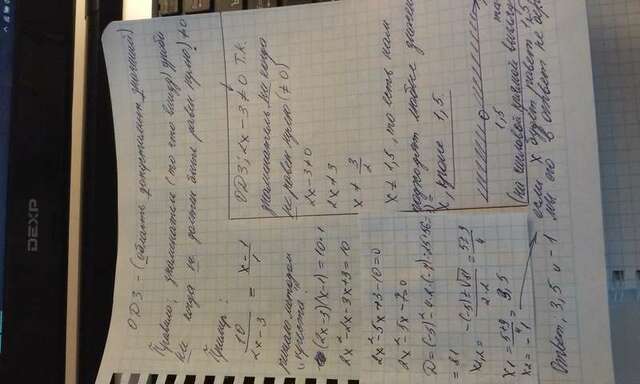 DEXP
ОДЗ - (область допустимых значений)
Правило: знаменатель (то что внизу) дроби
ни когда не должен быть равен нулю) ≠0
Пример:
10/(2x-3) = (x-1)/1
методом
"креста"
(2x-3)(x-1)=10·1
2x²-2x-3x+3=10
2x²-5x+3-10=0
2x²-5x-7=0
D=(-5)²-4·2·(-7)=25+56=
=81
x1,2=(-(-5)±√81)/(2·2)=(5±9)/4
x1=(5+9)/4=3,5
x2=-1
ОДЗ: 2x-3≠0 т.к.
знаменатель ни когда
не равен нулю (≠0)
2x-3≠0
2x≠3
x≠3/2
x≠1,5, то есть нам
подходят любые значен
x, кроме 1,5.
1,5
(на числовой прямой
если x будет равен 1,5
мы его в ответ не бер
Ответ: 3,5 и -1